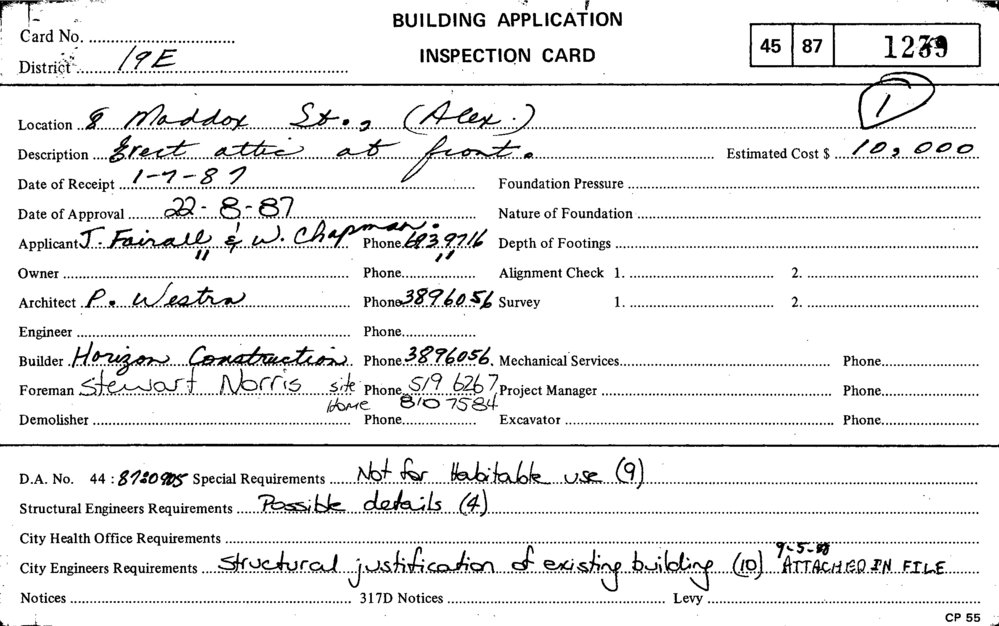 BUILDING APPLICATION
INSPECTION CARD
Card No.
District 19E
45 87
Location 8 Maddox St., (Alex.) 1
Description Erect attic at front. Estimated Cost $ 10,000
Date of Receipt 1-7-87 Foundation Pressure
Date of Approval 22-8-87 Nature of Foundation
Applicant J. Fairall & W. Chapman. Phone 6939716 Depth of Footings
Owner " Phone " Alignment Check 1. 2.
Architect P. Westra Phone 3896056 Survey 1. 2.
Engineer Phone
Builder Horizon Construction Phone 3896056 Mechanical Services Phone
Foreman Stewart Norris site Phone 519 6267 Project Manager Phone
Home 810 7584
Demolisher Phone Excavator Phone
D.A. No. 44 : Special Requirements Not for Habitable use (9)
Structural Engineers Requirements Possible details (4)
City Health Office Requirements
City Engineers Requirements structural justification of existing building (10) ATTACHED IN FILE
Notices 317D Notices Levy
CP 55